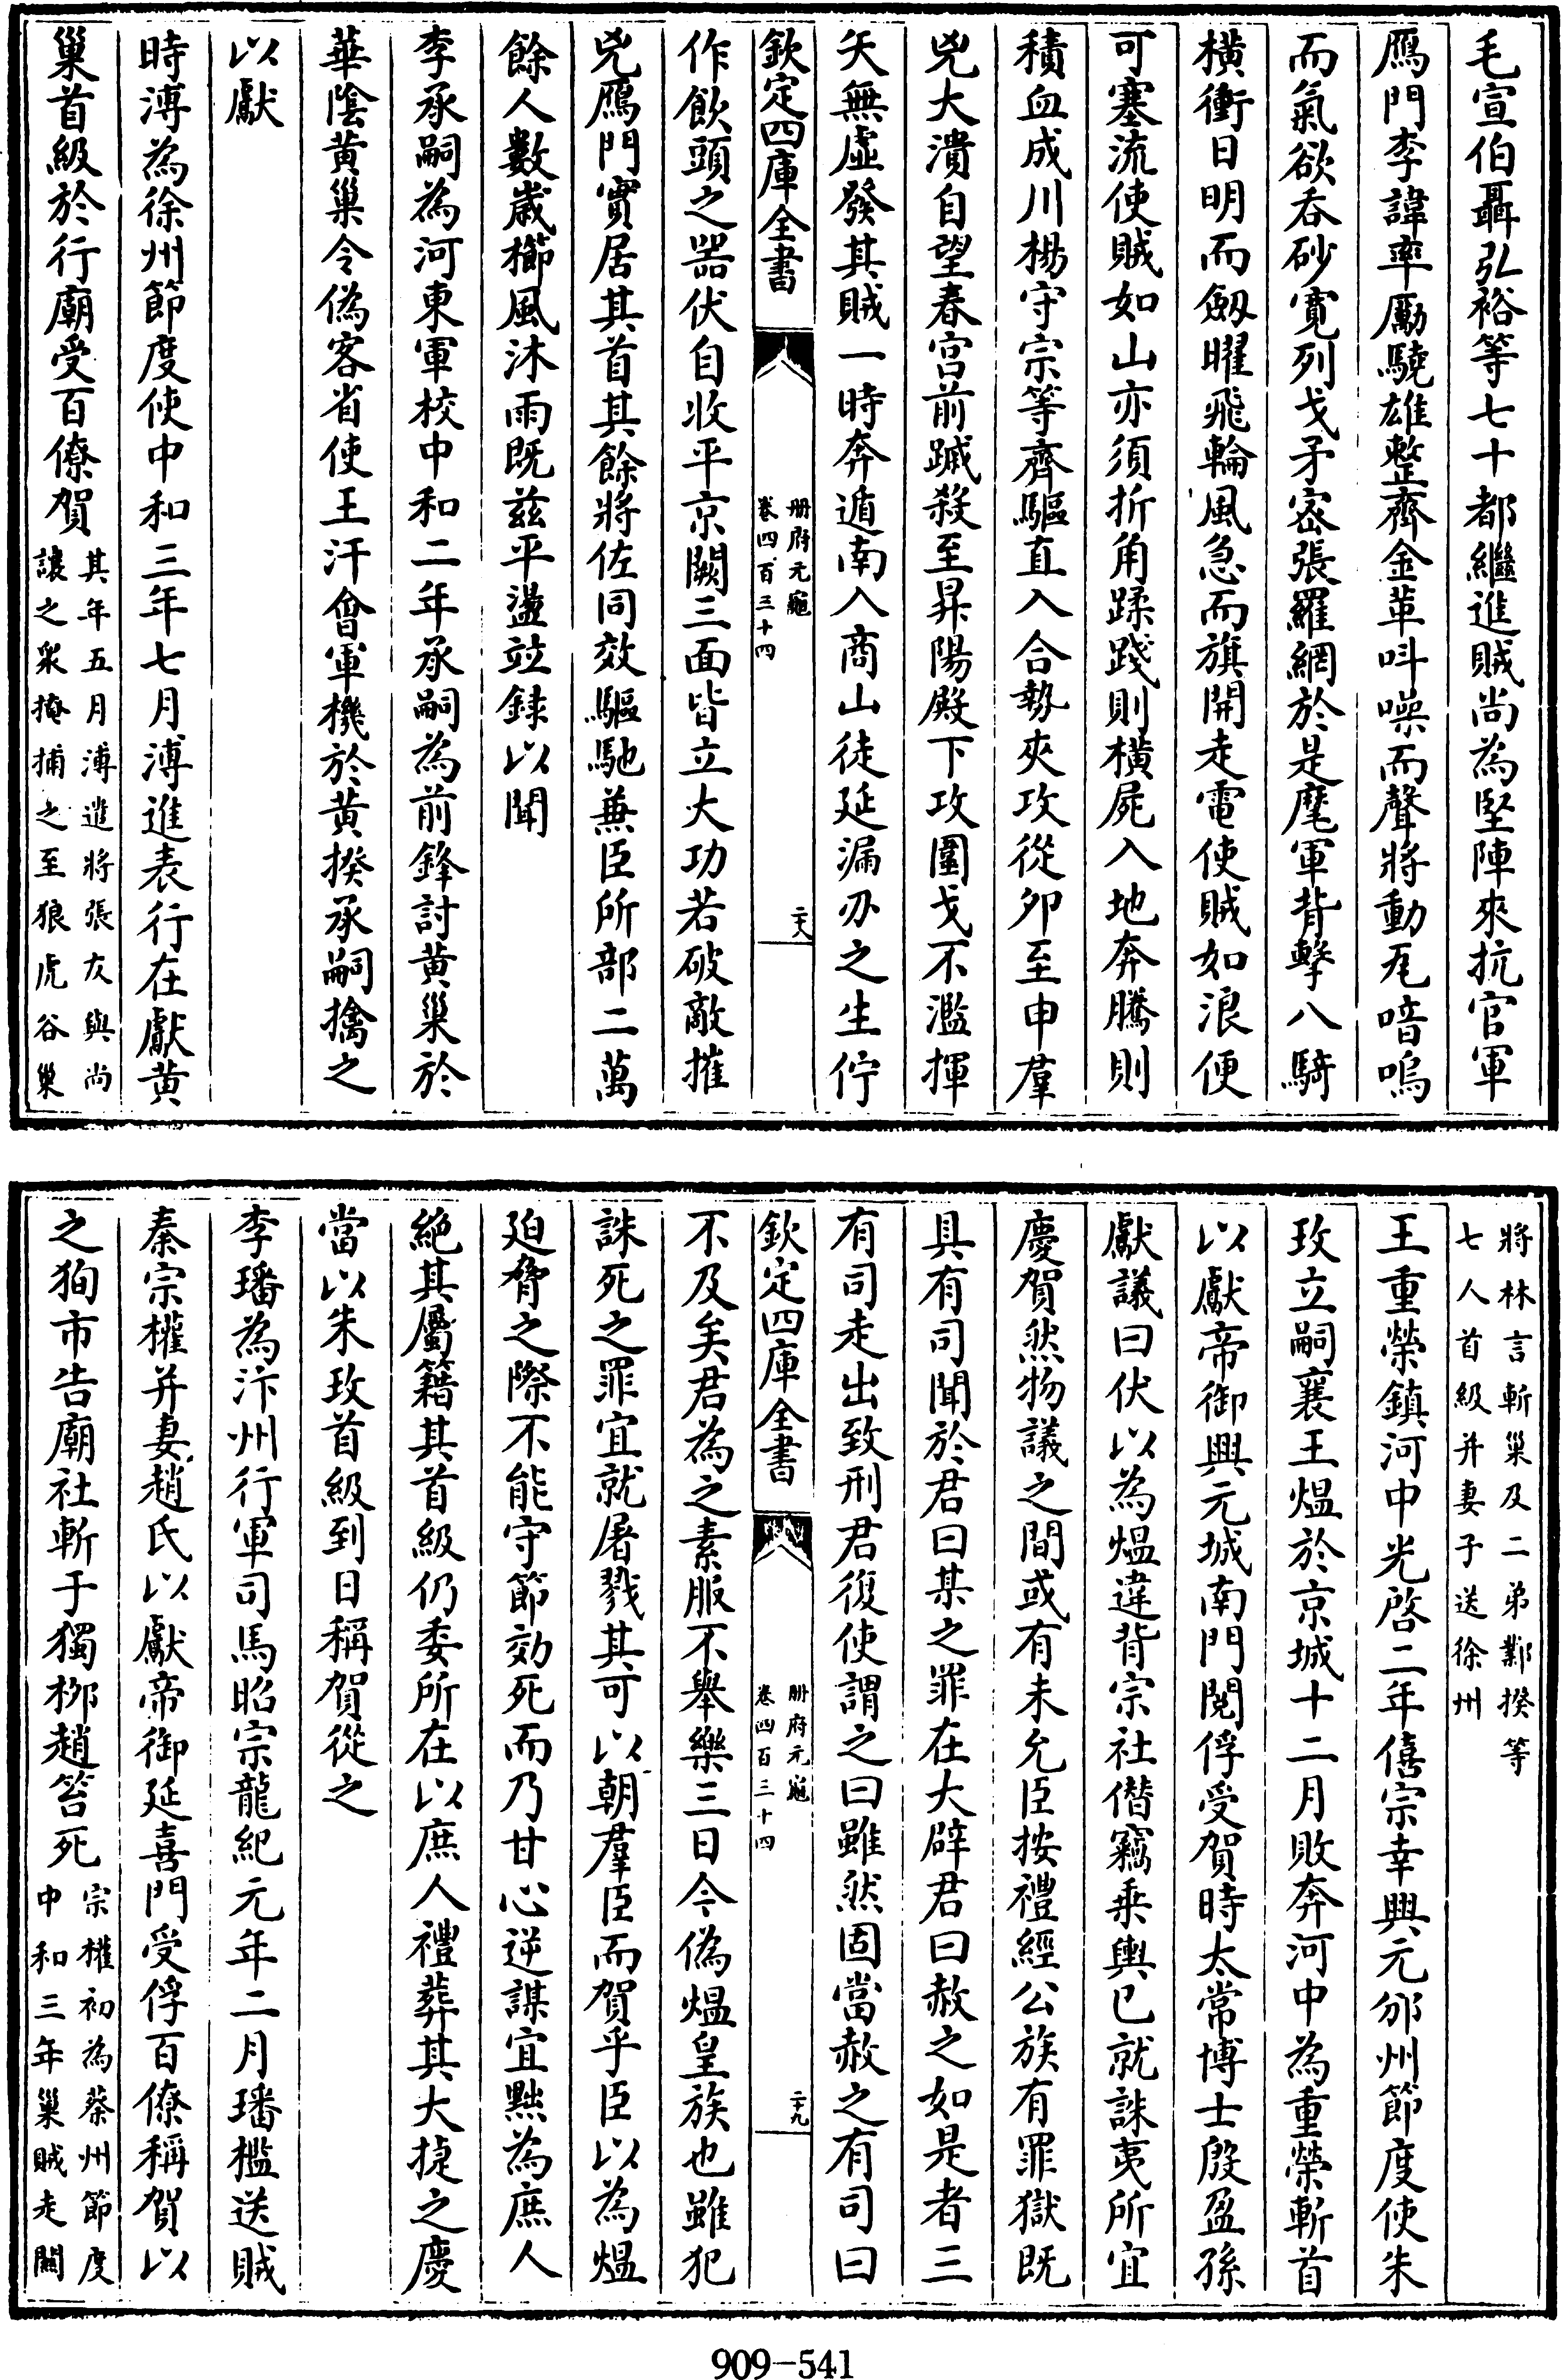 毛宣伯聶弘裕等七十都繼進賊尚為堅陣來抗官軍
鴈門李諱率勵驍雄整齊金革呌噪而聲將動瓦喑嗚
而氣欲吞砂寛列戈矛宻張羅網於是麾軍背擊八騎
横衝日明而劔曜飛輪風急而旗開走電使賊如浪便
可塞流使賊如山亦須折角蹂踐則横屍入地奔騰則
積血成川楊守宗等齊驅直入合勢夾攻從卯至申羣
兇大潰自望春宫前䠞殺至昇陽殿下攻圍戈不濫揮
矢無虛發其賊一時奔遁南入商山徒延漏刃之生佇
欽定四庫全書
冊府元龜
卷四百三十四
二十八
作飲頭之器伏自收平京闕三面皆立大功若破敵摧
兇鴈門實居其首其餘將佐同效驅馳兼臣所部二萬
餘人數歳櫛風沐雨既兹平盪竝録以聞
李承嗣為河東軍校中和二年承嗣為前鋒討黄巢於
華陰黄巢令偽客省使王汗㑹軍機於黄揆承嗣擒之
以獻
時溥為徐州節度使中和三年七月溥進表行在獻黄
巢首級於行廟受百僚賀
其年五月溥進將張友與尚
讓之衆掩捕之至狼虎谷巢
將林言斬巢及二弟鄴揆等
七人首級并妻子送徐州
王重榮鎮河中光啓二年僖宗幸興元邠州節度使朱
玫立嗣襄王熅於京城十二月敗奔河中為重榮斬首
以獻帝御興元城南門閲俘受賀時太常博士殷盈孫
獻議曰伏以為熅違背宗社僣竊乗輿已就誅夷所宜
慶賀然物議之間或有未允臣按禮經公族有罪獄既
具有司聞於君曰某之罪在大辟君曰赦之如是者三
有司走出致刑君復使謂之曰雖然固當赦之有司曰
欽定四庫全書
冊府元龜
卷四百三十四
二十九
不及矣君為之素服不舉樂三日今偽熅皇族也雖犯
誅死之罪宜就屠戮其可以朝羣臣而賀乎臣以為熅
廹脅之際不能守節効死而乃甘心逆謀宜黜為庶人
絶其屬籍其首級仍委所在以庶人禮葬其大捷之慶
當以朱玫首級到日稱賀從之
李璠為汴州行軍司馬昭宗龍紀元年二月璠檻送賊
秦宗權并妻趙氏以獻帝御延喜門受俘百僚稱賀以
之狥市告廟社斬于獨栁趙笞死
宗權初為蔡州節度
中和三年巢賊走關
909-541